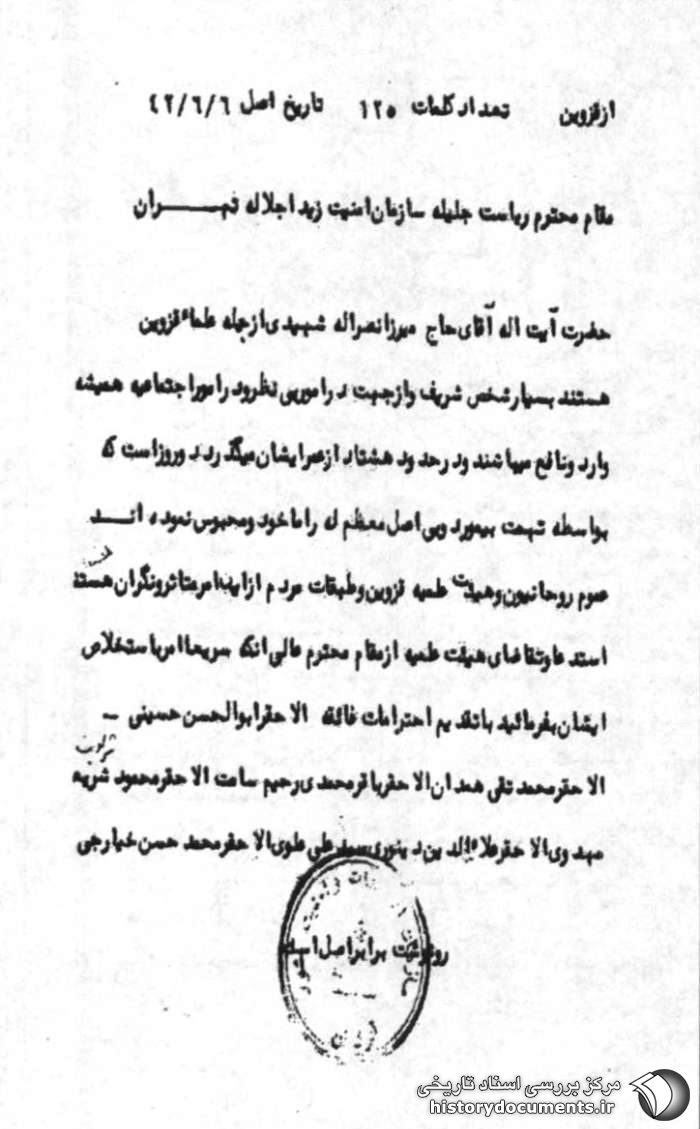 از قزوین تعداد کلمات ۱۲۵ تاریخ اصل ۴۲/۶/۶
مقام محترم ریاست جلیله سازمان امنیت زید اجلاله تهـــران
حضرت آیت اله آقای حاج میرزا نصراله شهیدی از جمله علماء قزوین
هستند بسیار شخص شریف و از جهت در امور بی نظر و در امور اجتماعیه همیشه
وارد و نافع میباشند و در حدود هشتاد از عمر ایشان میگذرد دو روز است که
بواسطه تهمت بیمورد و بی اصل معظم له را ماخوذ و محبوس نموده انـــد
عموم روحانیون و هیئت علمیه قزوین و طبقات مردم از این امر متاثر و نگران هستند
استدعا و تقاضای هیئت علمیه از مقام محترم عالی انکه سریعا امر باستخلاص
ایشان بفرمائید با تقدیم احترامات فائقه الاحقر ابوالحسن حسینی –
الاحقر محمد تقی همدان الاحقر باقر محمدی رحیم سامت الاحقر محمود شریعت
مهدوی الاحقر علاءالدین دینوری سید علی علوی الاحقر محمد حسن خیارجی
رونوشت برابر اصل است
مرکز بررسی اسناد تاریخی
historydocuments.ir